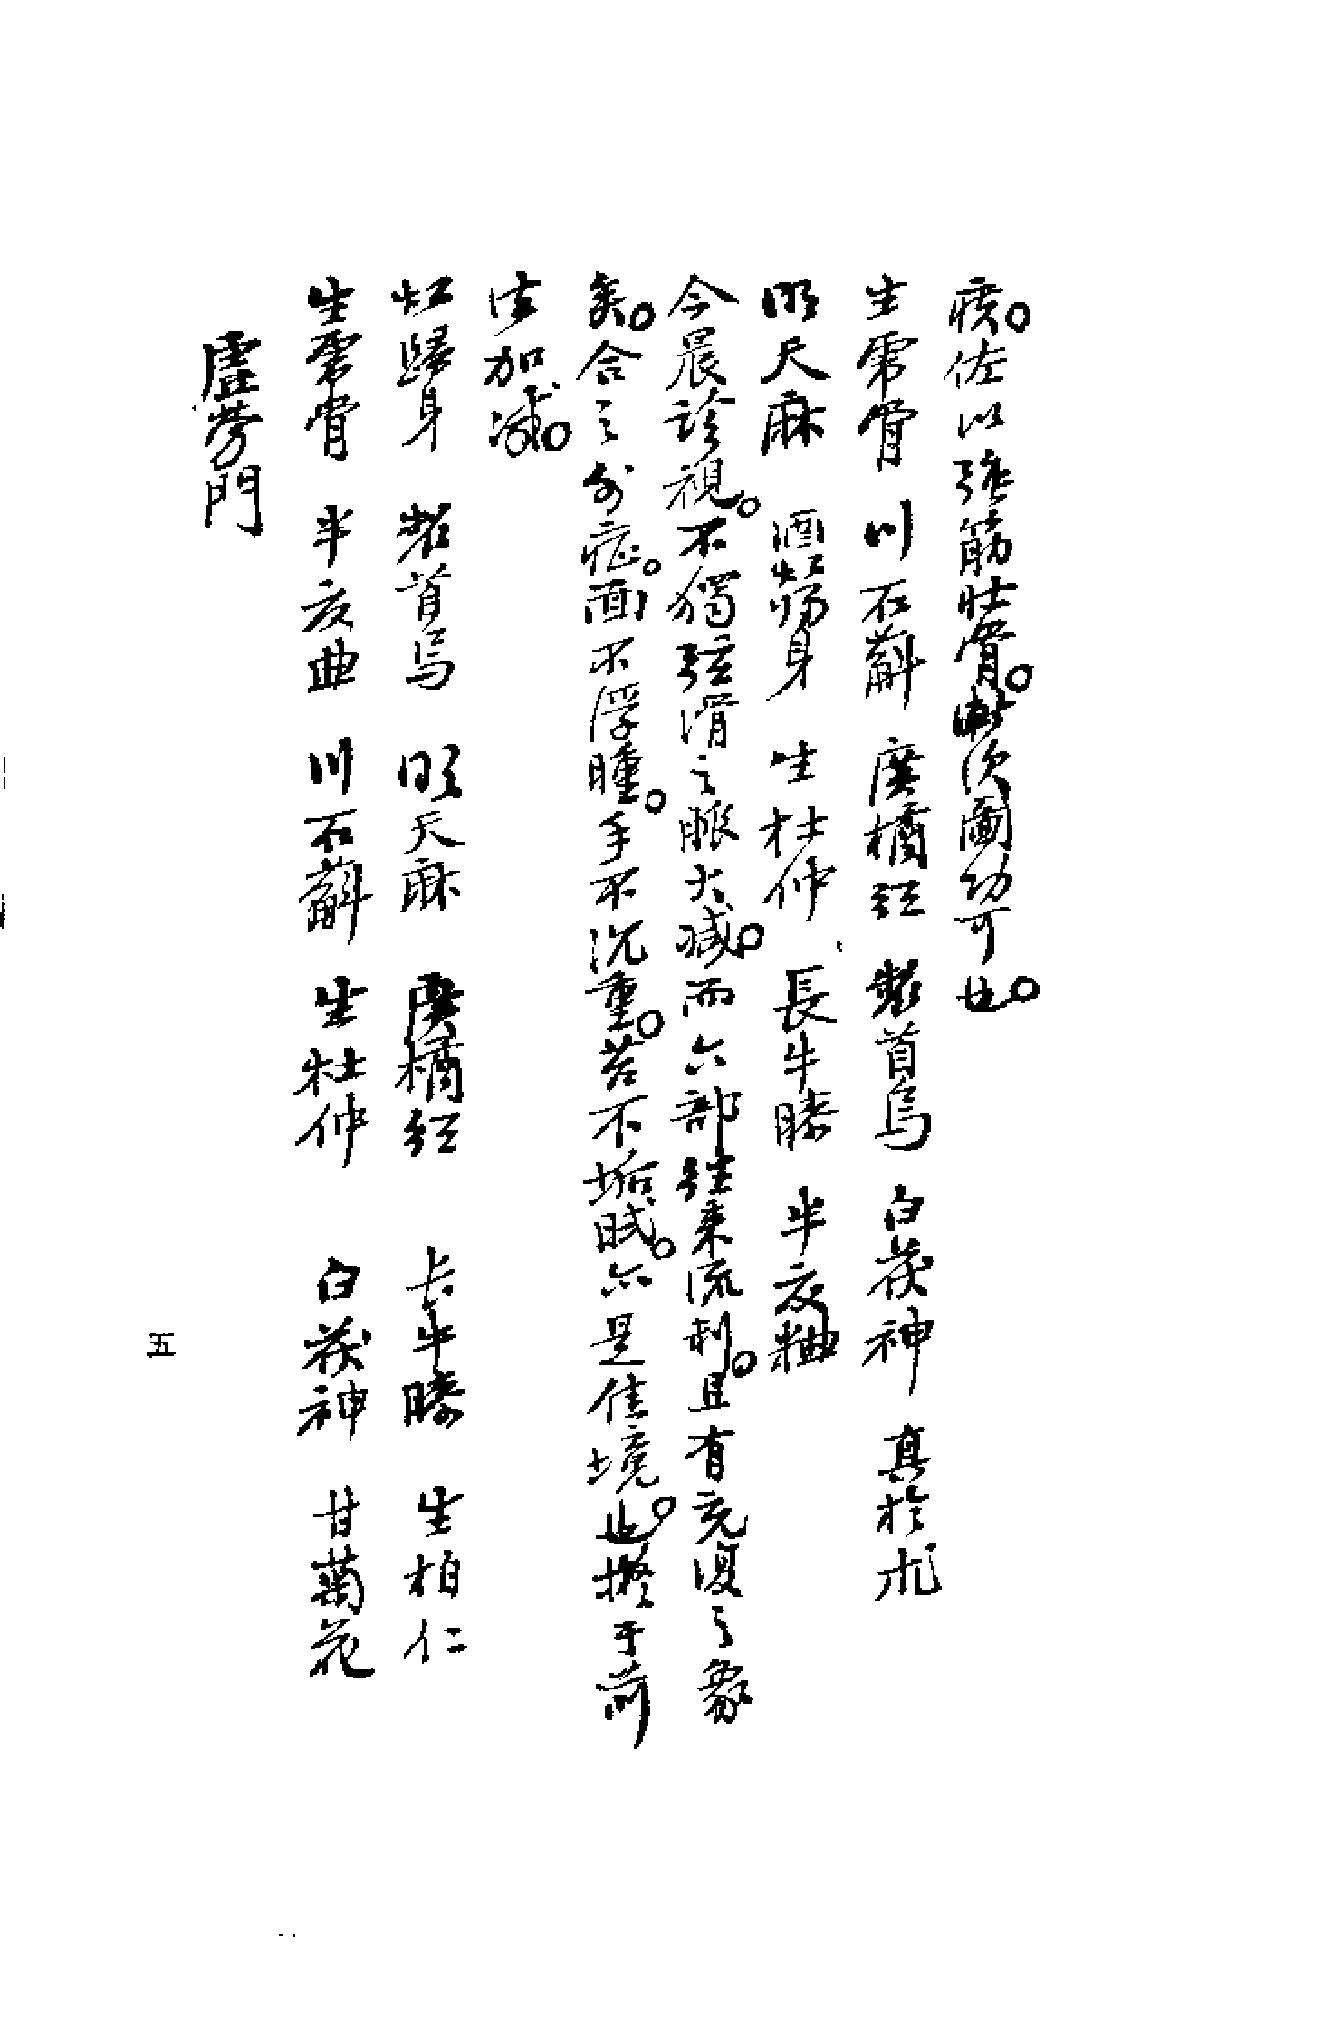 痰。佐以强筋壯骨。漸次圖功可也。
生虎骨　川石斛　廣橘紅　製首烏　白茯神　真於朮
明天麻　酒歸身　生杜仲　長牛膝　半夏粬
今晨診視。不獨弦滑之脈大減。而六部往來流利。且有充復之象
矣。合之外症。面不浮腫。手不沉重。苔不垢膩。亦是佳境也。擬于前
法加減。
歸身　製首烏　明天麻　廣橘紅　長牛膝　生柏仁
生虎骨　半夏曲　川石斛　生杜仲　白茯神　甘菊花
虛勞門
五